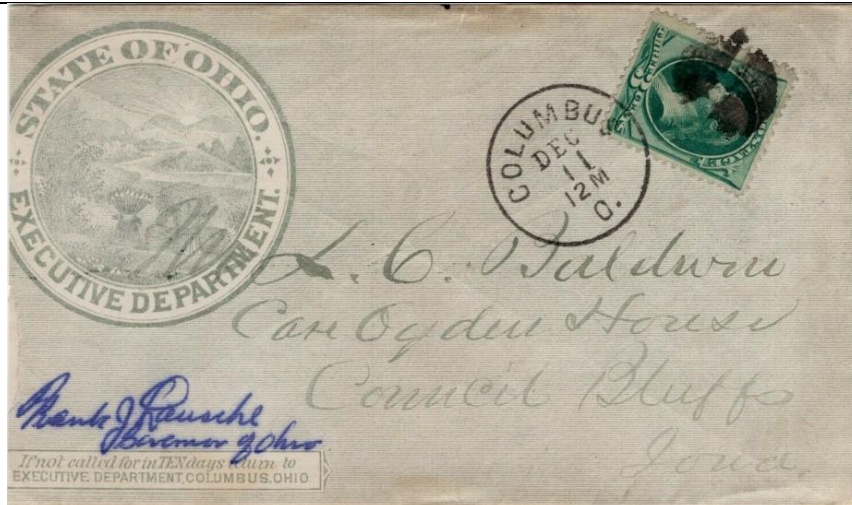 STATE OF OHIO.
EXECUTIVE DEPARTMENT.
COLUMBUS
DEC
11
12M
O.
L. C. Baldwin
Care Ogden House
Council Bluffs
Iowa.
Frank J Lausche
Governor of Ohio
If not called for in TEN days return to
EXECUTIVE DEPARTMENT, COLUMBUS, OHIO